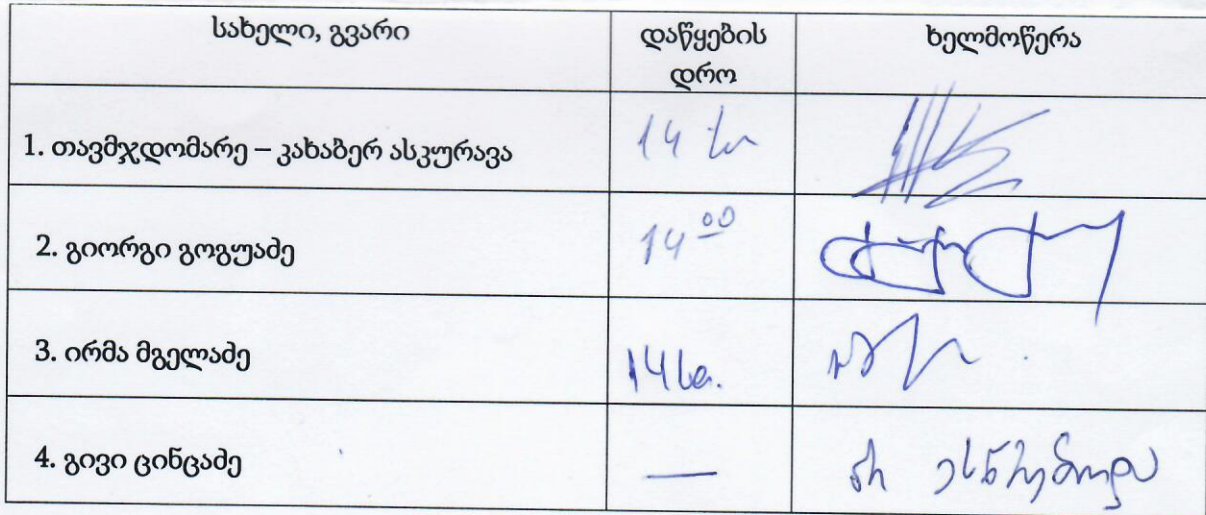 სახელი, გვარი
დაწყების
დრო
ხელმოწერა
1. თავმჯდომარე – კახაბერ ასკურავა
14 სთ
2. გიორგი გოგუაძე
14 00
3. ირმა მგელაძე
14 სთ.
4. გივი ცინცაძე
—
არ ესწრებოდა